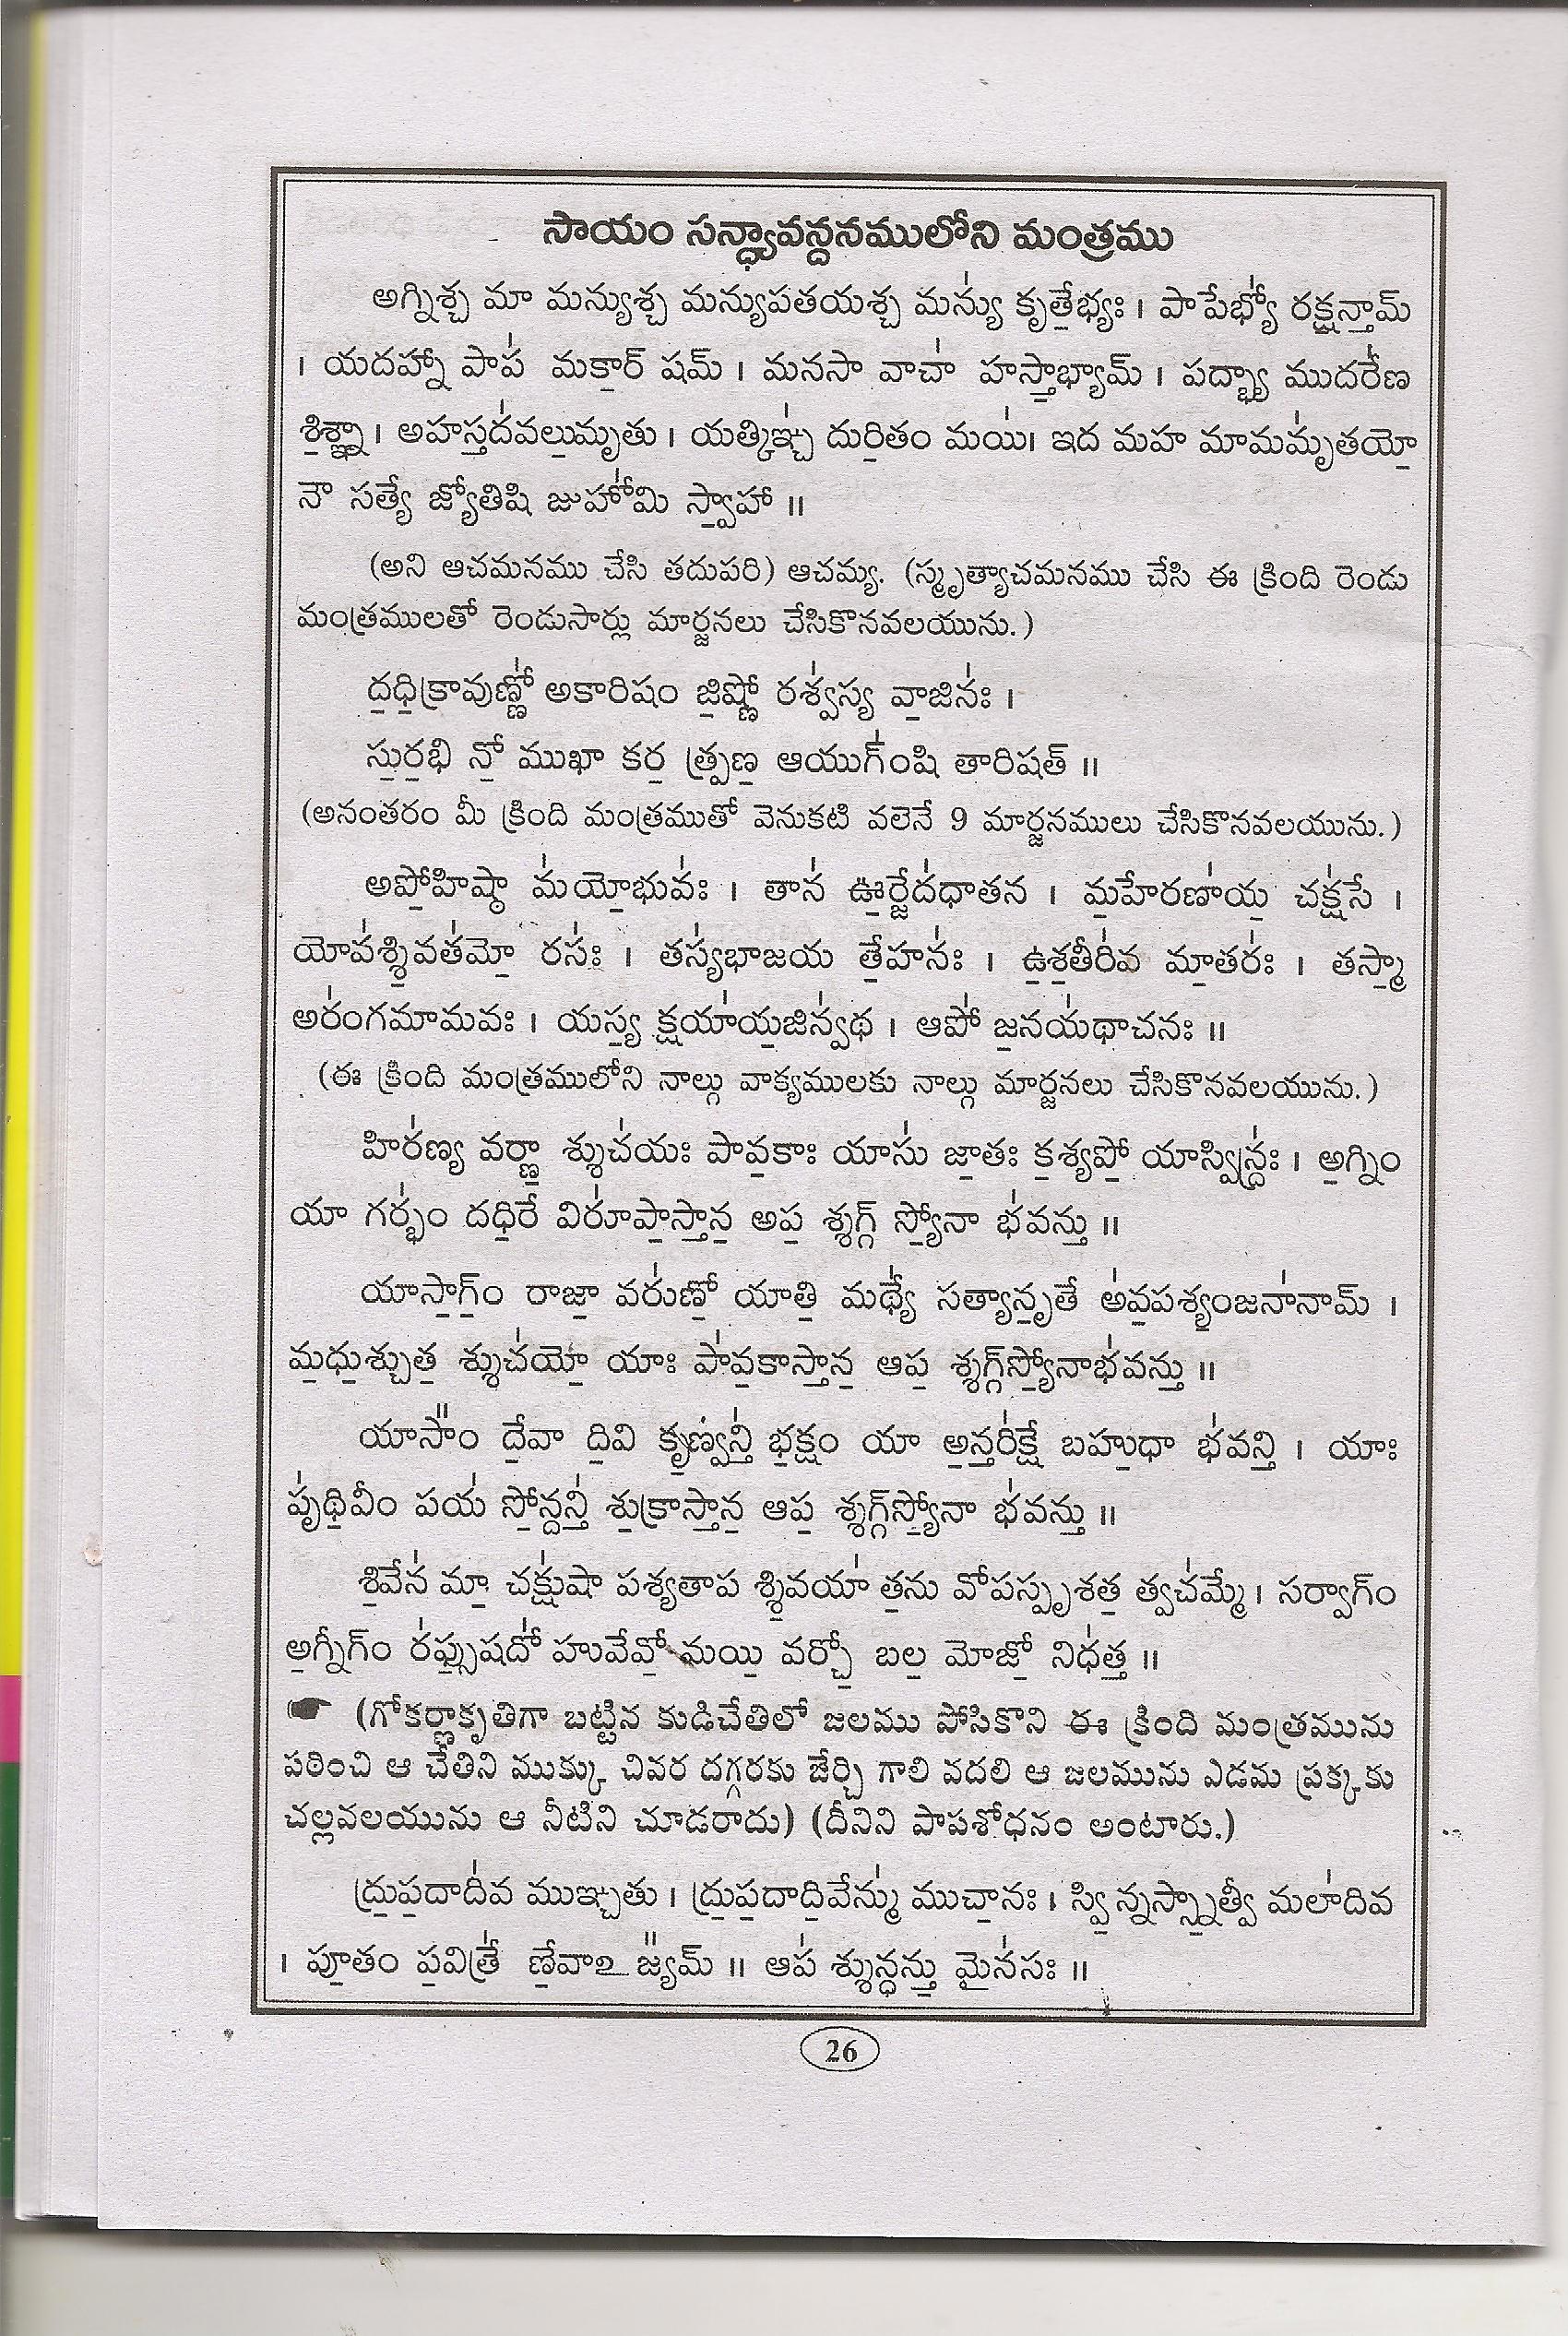 సాయం సన్ధ్యావన్దనములోని మంత్రము
అగ్నిశ్చ మా మన్యుశ్చ మన్యుపతయశ్చ మన్యు॑ కృతే॒భ్యః । పాపేభ్యో॑ రక్ష॒న్తామ్
। యదహ్నా పాప॑ మకా॒ర్ షమ్ । మనసా వాచా॑ హస్తా॒భ్యామ్ । పద్భ్యా ముదరే॑ణ
శి॒శ్ఞా । అహస్తద॑వలు॒మృతు । యత్కిఞ్చ॑ దురి॒తం మయి॑। ఇద మహ మామమృ॑తయో॒
నౌ సత్యే జ్యోతిషి జుహో॑మి స్వా॒హా ॥
(అని ఆచమనము చేసి తదుపరి) ఆచమ్య. (స్మృత్యాచమనము చేసి ఈ క్రింది రెండు
మంత్రములతో రెండుసార్లు మార్జనలు చేసికొనవలయును.)
ద॒ధి॒క్రావుణ్ణో॑ అకారిషం జి॒ష్ణో రశ్వ॑స్య వా॒జినః॑ ।
సు॒ర॒భి నో॒ ముఖా కర॒ త్ప్రణ॒ ఆయుగ్ం॑షి తారిషత్ ॥
(అనంతరం మీ క్రింది మంత్రముతో వెనుకటి వలెనే 9 మార్జనములు చేసికొనవలయును.)
అపో॒హిష్ఠా మ॑యో॒భువః॑ । తాన॑ ఊ॒ర్జేద॑ధాతన । మ॒హేరణా॑య॒ చక్ష॑సే ।
యోవ॑శ్శి॒వత॑మో॒ రసః॑ । తస్య॑భాజయ తే॒హనః॑ । ఉ॒శ॒తీరి॑వ మా॒తరః॑ । తస్మా॒
అరం॑గమామవః । యస్య॒ క్షయా॑య॒జిన్వ॑థ । ఆపో॑ జ॒నయ॑థాచనః ॥
(ఈ క్రింది మంత్రములోని నాల్గు వాక్యములకు నాల్గు మార్జనలు చేసికొనవలయును.)
హిర॑ణ్య వర్ణా॒ శ్శుచ॑యః పావ॒కాః యాసు॑ జా॒తః క॒శ్యపో॒ యాస్విన్ద్రః॑ । అ॒గ్నిం
యా గర్భం॑ దధి॒రే విరూ॑పా॒స్తాన॒ అప॒ శ్శగ్గ్ స్యో॒నా భ॑వన్తు॒ ॥
యాసా॒గ్ం॒ రాజా॒ వరు॑ణో॒ యాతి॒ మధ్యే॑ సత్యాన్ప॒తే అ॑వ॒పశ్యం॒జనా॑నామ్ ।
మ॒ధు॒శ్చుత॒ శ్శుచ॑యో॒ యాః పా॑వ॒కాస్తా॒న॒ ఆప॒ శ్శగ్గ్॑స్యో॒నాభ॑వన్తు॒ ॥
యాసాం᳚ దే॒వా ది॒వి కృ॒ణ్వన్తి॑ భ॒క్షం యా అ॒న్తరి॑క్షే బహు॒ధా భ॑వన్తి॒ । యాః
పృ॑థి॒వీం పయ॑ సో॒న్దన్తి॑ శు॒క్రాస్తా॒న॒ ఆప॒ శ్శగ్గ్॑స్యో॒నా భ॑వన్తు॒ ॥
శి॒వేన॑ మా॒ చక్షు॑షా పశ్యతాప శ్శి॒వయా॑ త॒ను వోపస్పృశత॒ త్వచ॑మ్మే । సర్వాగ్ం॑
అ॒గ్నీగ్ం ర॑ఫ్సు॒షదో॑ హువేవో॒ మయి॒ వర్చో॒ బల॒ మోజో॒ నిధ॑త్త॒ ॥
(గోకర్ణాకృతిగా బట్టిన కుడిచేతిలో జలము పోసికొని ఈ క్రింది మంత్రమును
పఠించి ఆ చేతిని ముక్కు చివర దగ్గరకు జేర్చి గాలి వదలి ఆ జలమును ఎడమ ప్రక్కకు
చల్లవలయును ఆ నీటిని చూడరాదు) (దీనిని పాపశోధనం అంటారు.)
ద్రు॒ప॒దాది॑వ ముఞ్చతు । ద్రు॒ప॒దాది॒వేన్ము॑ ముచా॒నః । స్వి॒న్నస్స్నాత్వీ మలా॑దివ
। పూ॒తం ప॒విత్రే॑ ణే॒వాఽ జ్య᳚మ్ ॥ ఆప॑ శ్శున్ధన్తు॒ మైన॑సః ॥
26